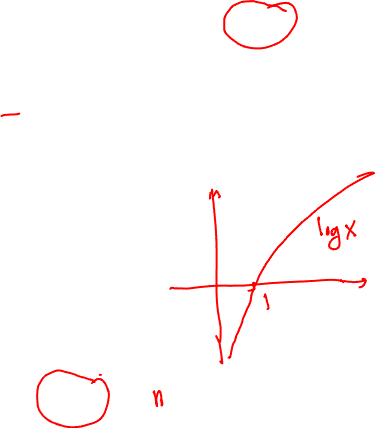 log x
1
n